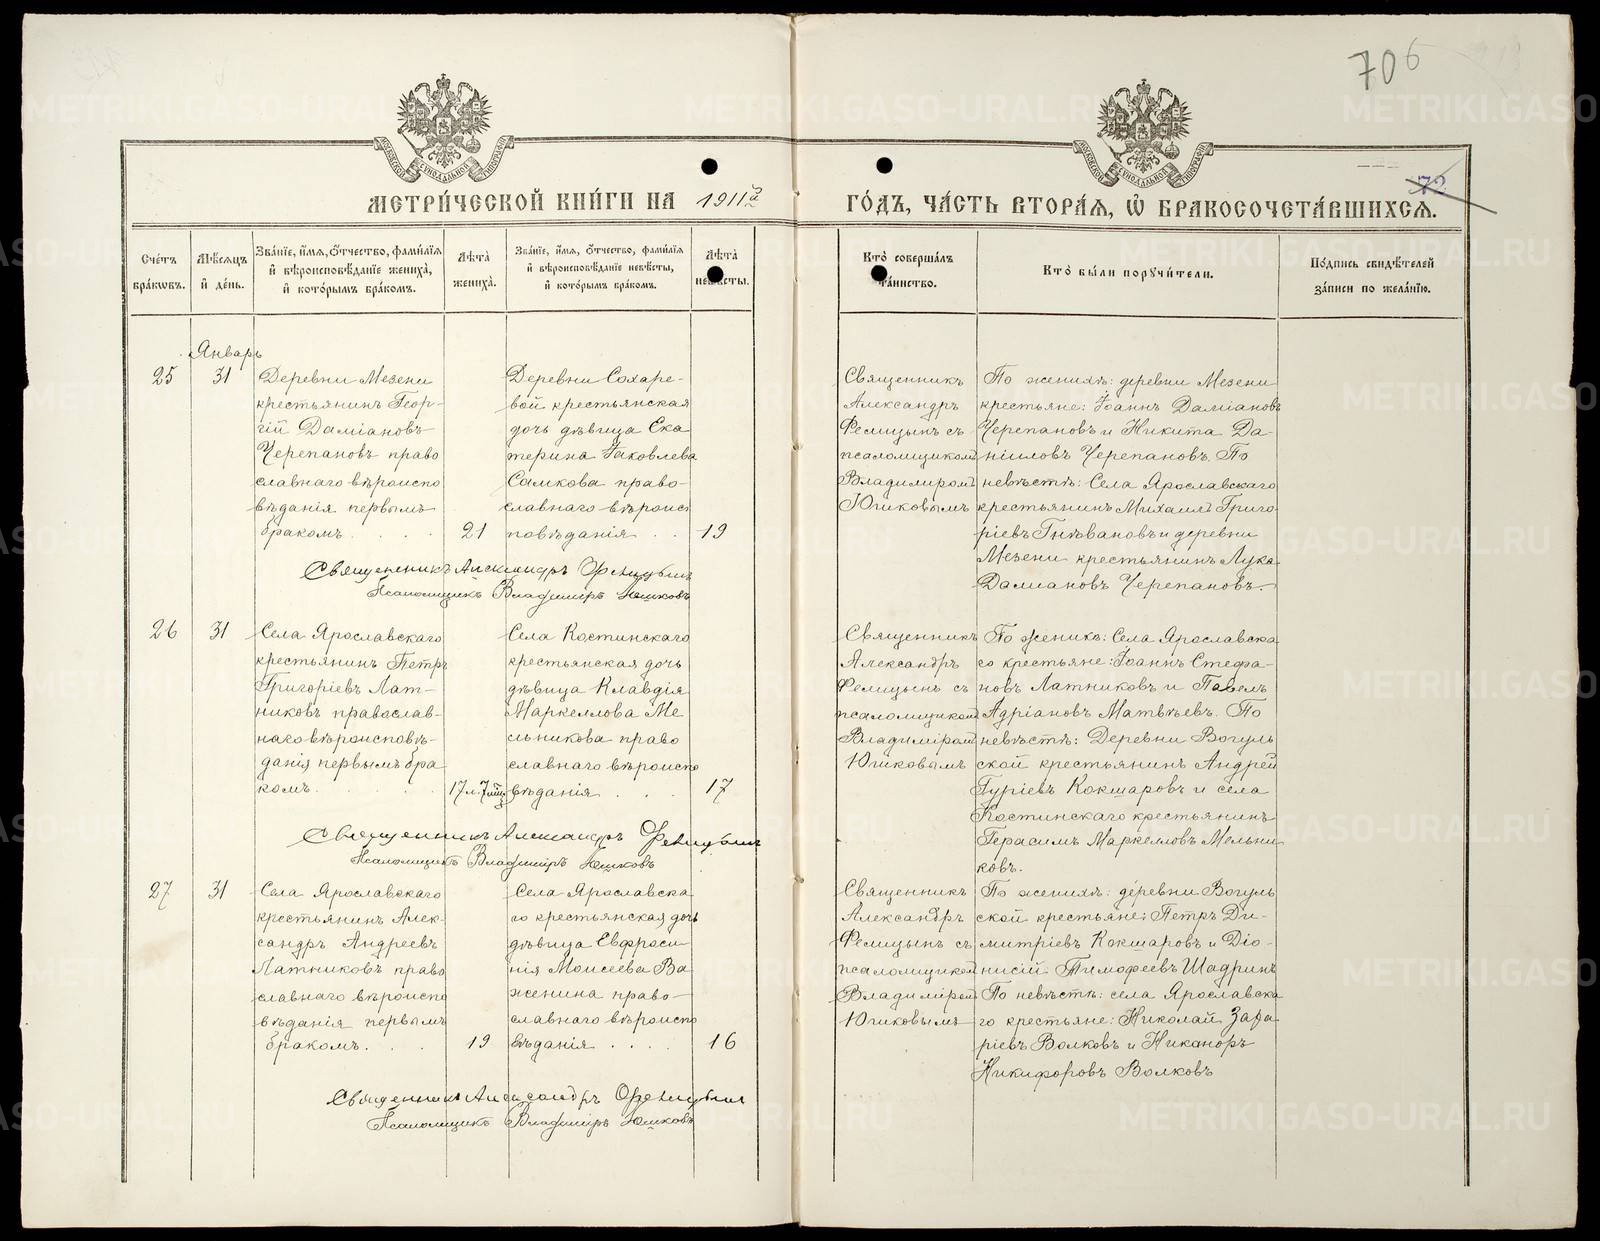 706
72
МЕТРИ́ЧЕСКОЙ КНИ́ГИ НА 1911й
ГО́ДЪ, ЧА́СТЬ ВТОРА́Я, Ѡ҆ БРАКОСОЧЕТА́ВШИХСЯ.
Сче́тъ бра́кѡвъ.
Мѣ́сяцъ и҆ де́нь.
Зва́нїе, и҆́мя, ѻ҆́тчество, фами́лїя и҆ вѣроисповѣ́данїе жениха̀, и҆ кото́рымъ бра́комъ.
Лѣ́та жениха̀.
Зва́нїе, и҆́мя, ѻ҆́тчество, фами́лїя и҆ вѣроисповѣ́данїе невѣ́сты, и҆ кото́рымъ бра́комъ.
Лѣ́та невѣ́сты.
Кто̀ соверша́лъ та́инство.
Кто̀ бы́ли поручи́тели.
По́дпись свидѣ́телей за́писи по жела́нїю.
Январь
25
31
Деревни Мезени
крестьянинъ Геор-
гій Даміановъ
Черепановъ право
славнаго вѣроиспо
вѣданія первымъ
бракомъ
21
Деревни Сохаре-
вой крестьянская
дочь дѣвица Ека
терина Іаковлева
Самкова право-
славнаго вѣроис
повѣданія
19
Священникъ
Александръ
Фелицынъ съ
псаломщикомъ
Владимиромъ
Юшковымъ
По женихѣ: деревни Мезени
крестьяне: Іоаннъ Даміановъ
Черепановъ и Никита Да-
ніиловъ Черепановъ. По
невѣстѣ: Села Ярославскаго
крестьянинъ Михаилъ Григо-
ріевъ Гнѣвановъ и деревни
Мезени крестьянинъ Лука
Даміановъ Черепановъ.
Священникъ Александръ Фелицынъ
Псаломщикъ Владиміръ Юшковъ
26
31
Села Ярославскаго
крестьянинъ Петръ
Григоріевъ Лат-
никовъ православ-
наго вѣроисповѣ-
данія первымъ бра
комъ
17 л. 7 мѣц
Села Костинскаго
крестьянская дочь
дѣвица Клавдія
Маркеллова Ме
льникова право
славнаго вѣроиспо
вѣданія
17
Священникъ
Александръ
Фелицынъ съ
псаломщикомъ
Владиміромъ
Юшковымъ
По женихѣ: Села Ярославска
го крестьяне: Іоаннъ Стефа-
новъ Латниковъ и Павелъ
Адріановъ Матвѣевъ. По
невѣстѣ: Деревни Вогуль
ской крестьянинъ Андрей
Гуріевъ Кокшаровъ и села
Костинскаго крестьянинъ
Герасимъ Маркелловъ Мельни-
ковъ.
Священникъ Александръ Фелицынъ
Псаломщикъ Владиміръ Юшковъ
27
31
Села Ярославскаго
крестьянинъ Алек-
сандръ Андреевъ
Латниковъ право
славнаго вѣроиспо
вѣданія первымъ
бракомъ.
19
Села Ярославска
го крестьянская дочь
дѣвица Евфроси-
нія Моисеева Ва
женина право-
славнаго вѣроиспо
вѣданія
16
Священникъ
Александръ
Фелицынъ съ
псаломщикомъ
Владиміромъ
Юшковымъ
По женихѣ: деревни Вогуль
ской крестьяне: Петръ Ди-
митріевъ Кокшаровъ и Діо-
нисій Тимофеевъ Шадринъ
По невѣстѣ: села Ярославска
го крестьяне: Николай Заха
ріевъ Волковъ и Никаноръ
Никифоровъ Волковъ
Священникъ Александръ Фелицынъ
Псаломщикъ Владиміръ Юшковъ
METRIKI.GASO-URAL.RU